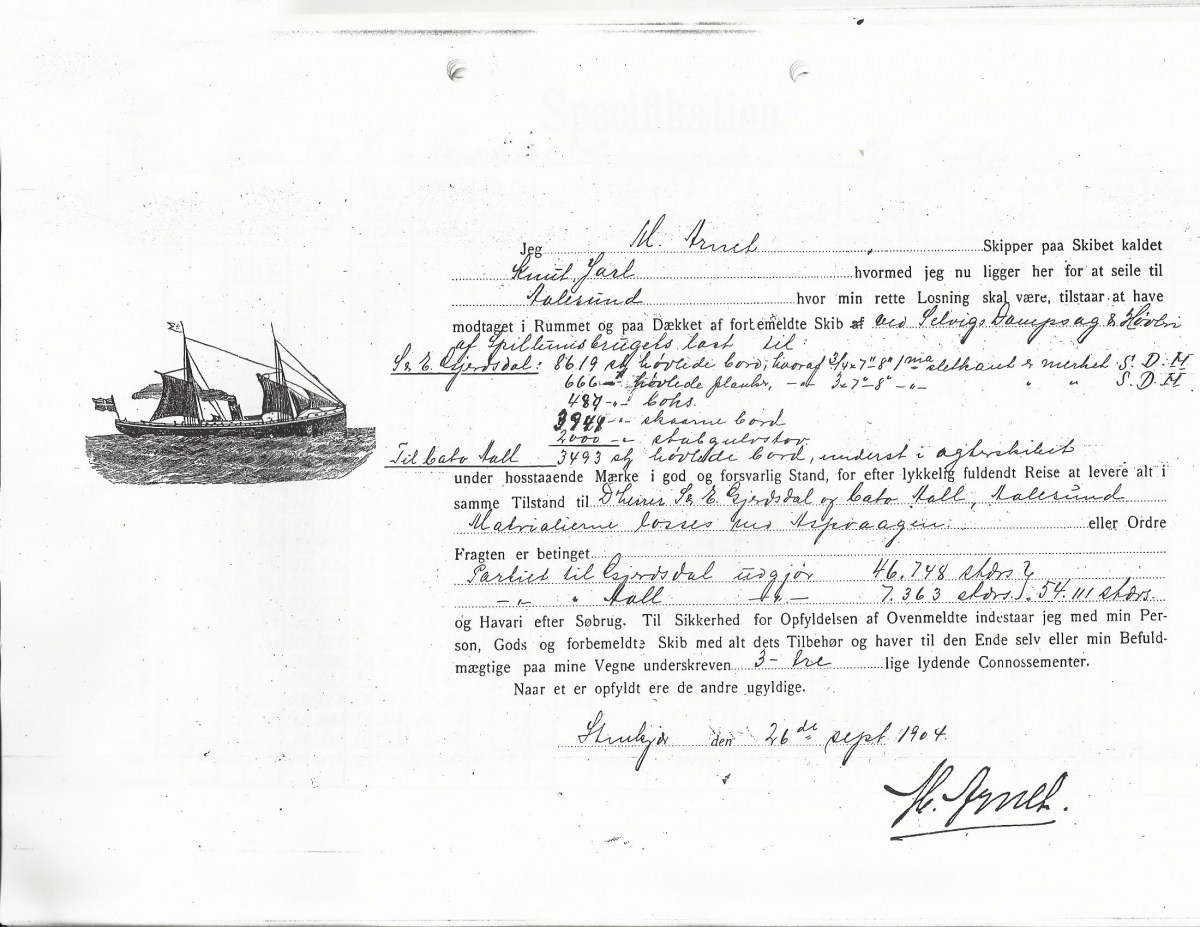 Specifikation
Jeg M. Arnet Skipper paa Skibet kaldet
Knut Jarl hvormed jeg nu ligger her for at seile til
Aalesund hvor min rette Losning skal være, tilstaar at have
modtaget i Rummet og paa Dækket af fortemeldte Skib ved Selvigs Dampsag & Høvleri
af Spillumsbrugets last til:
S. E. Gjerdsdal: 8619 stk høvlede bord, hvoraf 3/4x7"-8" 1ma slethauet er merket S. D. M
666 - " - høvlede planker, - " - 3x7"-8" - " - " " S. D. M.
487 - " -
3949 - " - skaarne bord
2000 - " - stabgulvstav
Til Cato Aall 3493 stk høvlede bord, underst i agterskibet
under hosstaaende Mærke i god og forsvarlig Stand, for efter lykkelig fuldendt Reise at levere alt i
samme Tilstand til D'Herrer S. E. Gjerdsdal og Cato Aall, Aalesund
Materialierne losses ved Aspevaagen eller Ordre
Fragten er betinget
Partiet til Gjerdsdal udgjør 46.748 stdrs
- " - " Aall - " - 7.363 stdrs. 54.111 stdrs.
og Havari efter Søbrug. Til Sikkerhed for Opfyldelsen af Ovenmeldte indestaar jeg med min Per-
son, Gods og forbemeldte Skib med alt dets Tilbehør og haver til den Ende selv eller min Befuld-
mægtige paa mine Vegne underskreven 3 - tre lige lydende Connossementer.
Naar et er opfyldt ere de andre ugyldige.
Stenkjær den 26de sept. 1904.
M. Arnet.